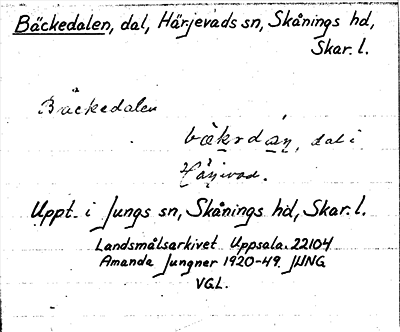 Bäckedalen, dal, Härjevads sn, Skånings hd,
Skar. l.
Bäckedalen
dal i
Uppt. i Jungs sn, Skånings hd, Skar. l.
Landsmålsarkivet Uppsala. 22104
Amanda Jungner 1920-49. JUNG
VGL.